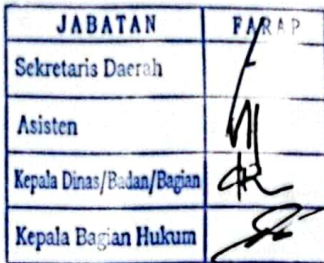 JABATAN FARAP
Sekretaris Daerah
Asisten
Kepala Dinas/Badan/Bagian
Kepala Bagian Hukum